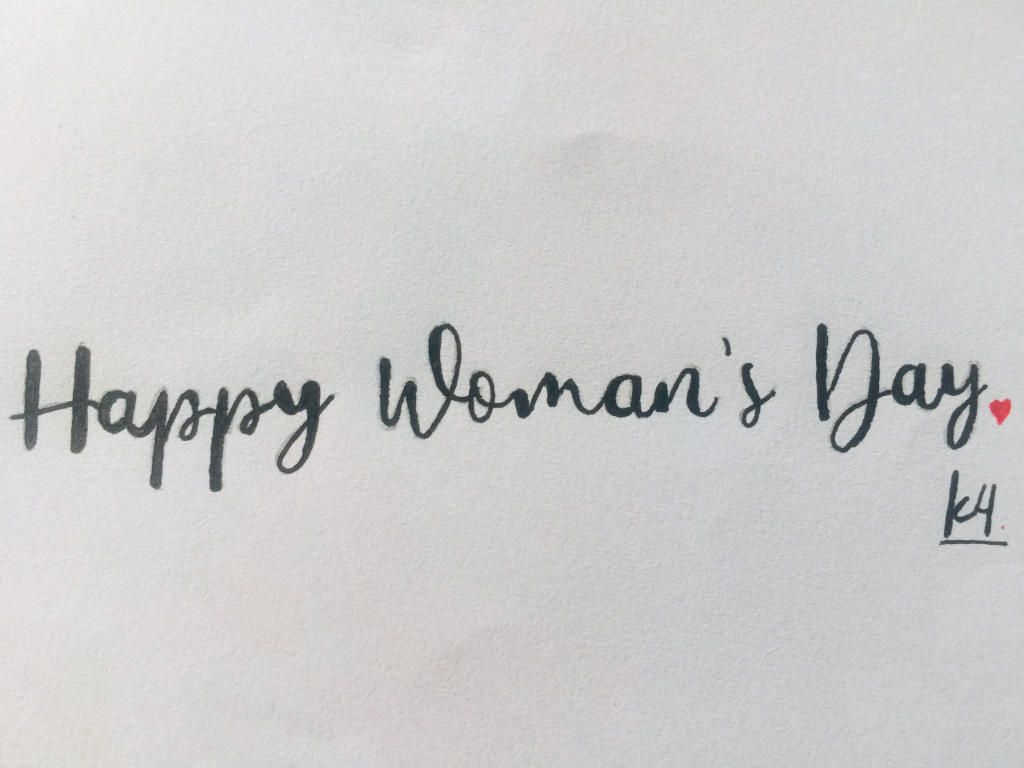 Happy Woman's Day
K4